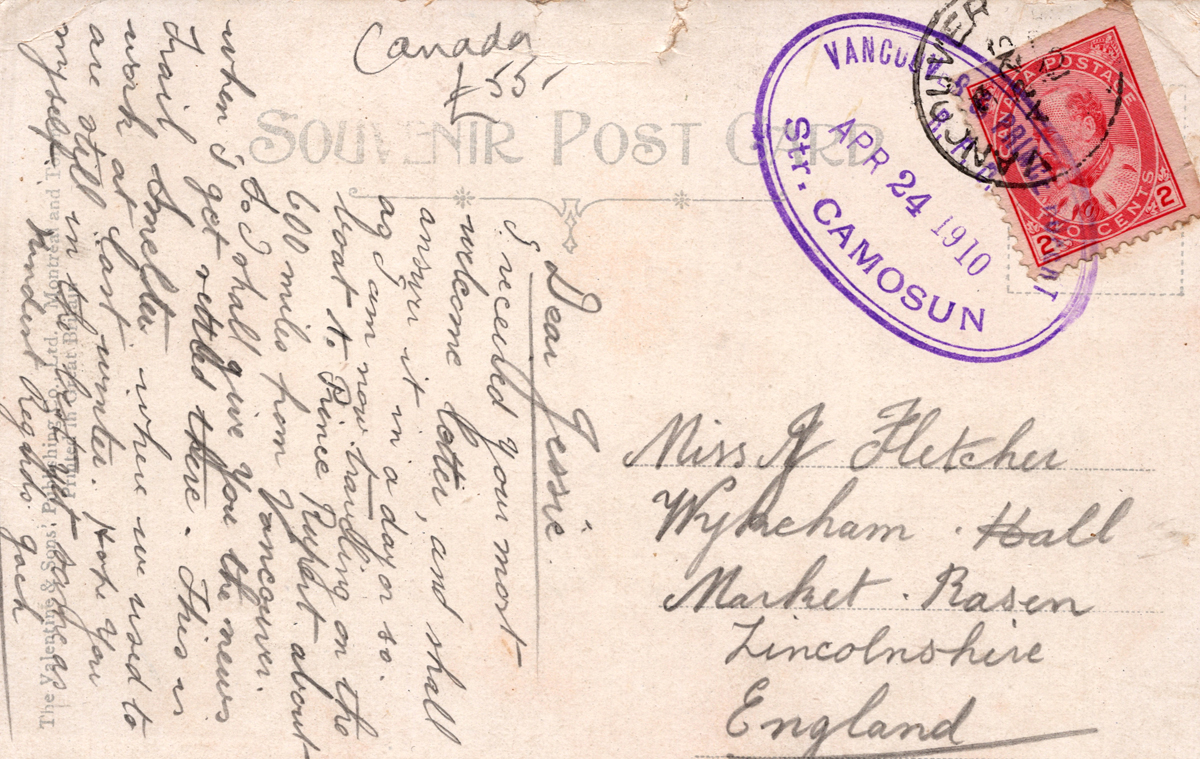 Canada
£55
SOUVENIR POST CARD
VANCOUVER
Str. CAMOSUN
APR 24 1910
VANCOUVER
CANADA POSTAGE
2 TWO CENTS 2
Dear Jessie.
I received your most
welcome letter, and shall
answer it in a day or so.
as I am now travelling on the
boat to Prince Rupert about
600 miles from Vancouver.
so I shall give you the news
when I get settled there. This is
Trail Smelter where we used to
work at last winter. Hope you
are still in the best as
myself
Kindest Regards Jack
Miss J Fletcher
Wykeham Hall
Market Rasen
Lincolnshire
England
The Valentine & Sons' Publishing Co., Ltd., Montreal and
Printed in Great Britain